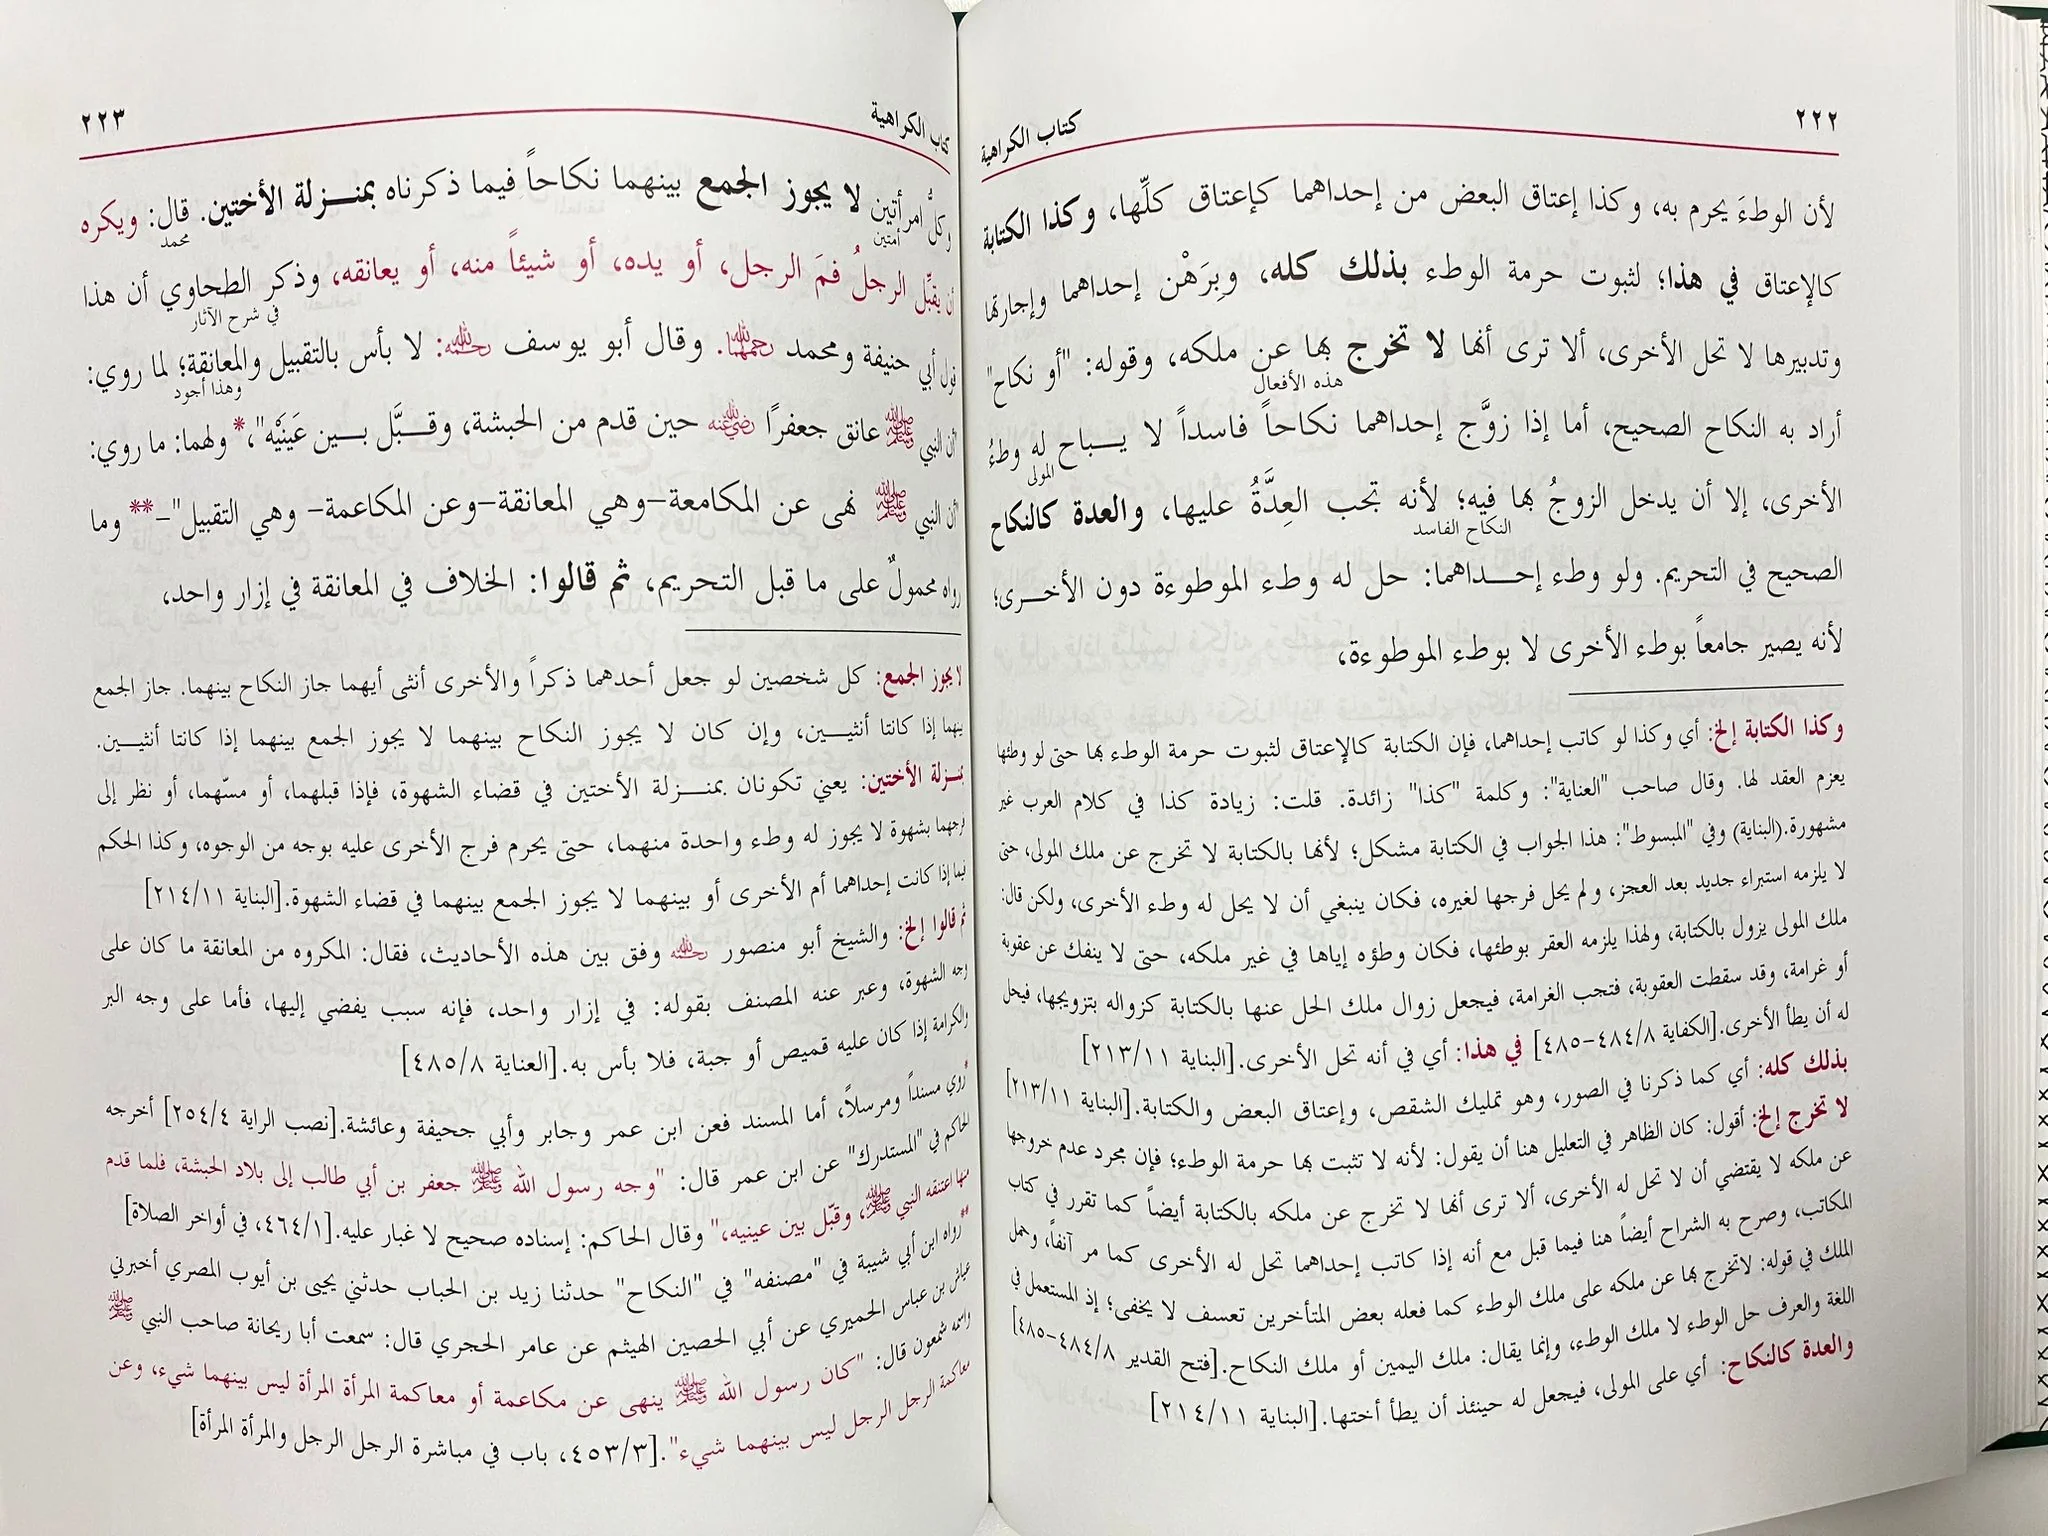 ٢٢٢
كتاب الكراهية
لأن الوطءَ يحرم به، وكذا إعتاق البعض من إحداهما كإعتاق كلِّها، وكذا الكتابة
كالإعتاق في هذا؛ لثبوت حرمة الوطء بذلك كله، وبِرَهْن إحداهما وإجارتها
وتدبيرها لا تحل الأخرى، ألا ترى أنها لا تخرج بها عن ملكه، وقوله: "أو نكاح"
هذه الأفعال
أراد به النكاح الصحيح، أما إذا زوَّج إحداهما نكاحاً فاسداً لا يباح له وطءُ
المولى
الأخرى، إلا أن يدخل الزوجُ بها فيه؛ لأنه تجب العِدَّةُ عليها، والعدة كالنكاح
النكاح الفاسد
الصحيح في التحريم. ولو وطء إحداهما: حل له وطء الموطوءة دون الأخرى؛
لأنه يصير جامعاً بوطء الأخرى لا بوطء الموطوءة،
وكذا الكتابة إلخ: أي وكذا لو كاتب إحداهما، فإن الكتابة كالإعتاق لثبوت حرمة الوطء بها حتى لو وطئها
يعزم العقد لها. وقال صاحب "العناية": وكلمة "كذا" زائدة. قلت: زيادة كذا في كلام العرب غير
مشهورة.(البناية) وفي "المبسوط": هذا الجواب في الكتابة مشكل؛ لأنها بالكتابة لا تخرج عن ملك المولى، حتى
لا يلزمه استبراء جديد بعد العجز، ولم يحل فرجها لغيره، فكان ينبغي أن لا يحل له وطء الأخرى، ولكن قال:
ملك المولى يزول بالكتابة، ولهذا يلزمه العقر بوطئها، فكان وطؤه إياها في غير ملكه، حتى لا ينفك عن عقوبة
أو غرامة، وقد سقطت العقوبة، فتجب الغرامة، فيجعل زوال ملك الحل عنها بالكتابة كزواله بتزويجها، فيحل
له أن يطأ الأخرى.[الكفاية ٤٨٤/٨-٤٨٥] في هذا: أي في أنه تحل الأخرى.[البناية ٢١٣/١١]
بذلك كله: أي كما ذكرنا في الصور، وهو تمليك الشقص، وإعتاق البعض والكتابة.[البناية ٢١٣/١١]
لا تخرج إلخ: أقول: كان الظاهر في التعليل هنا أن يقول: لأنه لا تثبت بها حرمة الوطء؛ فإن مجرد عدم خروجها
عن ملكه لا يقتضي أن لا تحل له الأخرى، ألا ترى أنها لا تخرج عن ملكه بالكتابة أيضاً كما تقرر في كتاب
المكاتب، وصرح به الشراح أيضاً هنا فيما قبل مع أنه إذا كاتب إحداهما تحل له الأخرى كما مر آنفاً، وحمل
الملك في قوله: لاتخرج بها عن ملكه على ملك الوطء كما فعله بعض المتأخرين تعسف لا يخفى؛ إذ المستعمل في
اللغة والعرف حل الوطء لا ملك الوطء، وإنما يقال: ملك اليمين أو ملك النكاح.[فتح القدير ٤٨٤/٨-٤٨٥]
والعدة كالنكاح: أي على المولى، فيجعل له حينئذ أن يطأ أختها.[البناية ٢١٤/١١]
كتاب الكراهية
٢٢٣
وكلُّ امرأتين لا يجوز الجمع بينهما نكاحاً فيما ذكرناه بمنزلة الأختين. قال: ويكره
أمتين
محمد
أن يقبِّل الرجلُ فمَ الرجل، أو يده، أو شيئاً منه، أو يعانقه، وذكر الطحاوي أن هذا
في شرح الآثار
قول أبي حنيفة ومحمد رحمهما الله. وقال أبو يوسف رحمه الله: لا بأس بالتقبيل والمعانقة؛ لما روي:
وهذا أجود
"أن النبي ﷺ عانق جعفرًا رضي الله عنه حين قدم من الحبشة، وقبَّل بين عَينَيْه"،* ولهما: ما روي:
"أن النبي ﷺ نهى عن المكامعة–وهي المعانقة–وعن المكاعمة– وهي التقبيل"–** وما
رواه محمولٌ على ما قبل التحريم، ثم قالوا: الخلاف في المعانقة في إزار واحد،
لا يجوز الجمع: كل شخصين لو جعل أحدهما ذكراً والأخرى أنثى أيهما جاز النكاح بينهما. جاز الجمع
بينهما إذا كانتا أنثيين، وإن كان لا يجوز النكاح بينهما لا يجوز الجمع بينهما إذا كانتا أنثيين.
بمنزلة الأختين: يعني تكونان بمنزلة الأختين في قضاء الشهوة، فإذا قبلهما، أو مسّهما، أو نظر إلى
فرجهما بشهوة لا يجوز له وطء واحدة منهما، حتى يحرم فرج الأخرى عليه بوجه من الوجوه، وكذا الحكم
فيما إذا كانت إحداهما أم الأخرى أو بينهما لا يجوز الجمع بينهما في قضاء الشهوة.[البناية ٢١٤/١١]
ثم قالوا إلخ: والشيخ أبو منصور رحمه الله وفق بين هذه الأحاديث، فقال: المكروه من المعانقة ما كان على
وجه الشهوة، وعبر عنه المصنف بقوله: في إزار واحد، فإنه سبب يفضي إليها، فأما على وجه البر
والكرامة إذا كان عليه قميص أو جبة، فلا بأس به.[العناية ٤٨٥/٨]
*روي مسنداً ومرسلاً، أما المسند فعن ابن عمر وجابر وأبي جحيفة وعائشة.[نصب الراية ٢٥٤/٤] أخرجه
الحاكم في "المستدرك" عن ابن عمر قال: "وجه رسول الله ﷺ جعفر بن أبي طالب إلى بلاد الحبشة، فلما قدم
منها اعتنقه النبي ﷺ، وقبّل بين عينيه،" وقال الحاكم: إسناده صحيح لا غبار عليه.[٤٦٤/١، في أواخر الصلاة]
**رواه ابن أبي شيبة في "مصنفه" في "النكاح" حدثنا زيد بن الحباب حدثني يحيى بن أيوب المصري أخبرني
عياش بن عباس الحميري عن أبي الحصين الهيثم عن عامر الحجري قال: سمعت أبا ريحانة صاحب النبي ﷺ
واسمه شمعون قال: "كان رسول الله ﷺ ينهى عن مكاعمة أو معاكمة المرأة المرأة ليس بينهما شيء، وعن
معاكمة الرجل الرجل ليس بينهما شيء".[٤٥٣/٣، باب في مباشرة الرجل الرجل والمرأة المرأة]